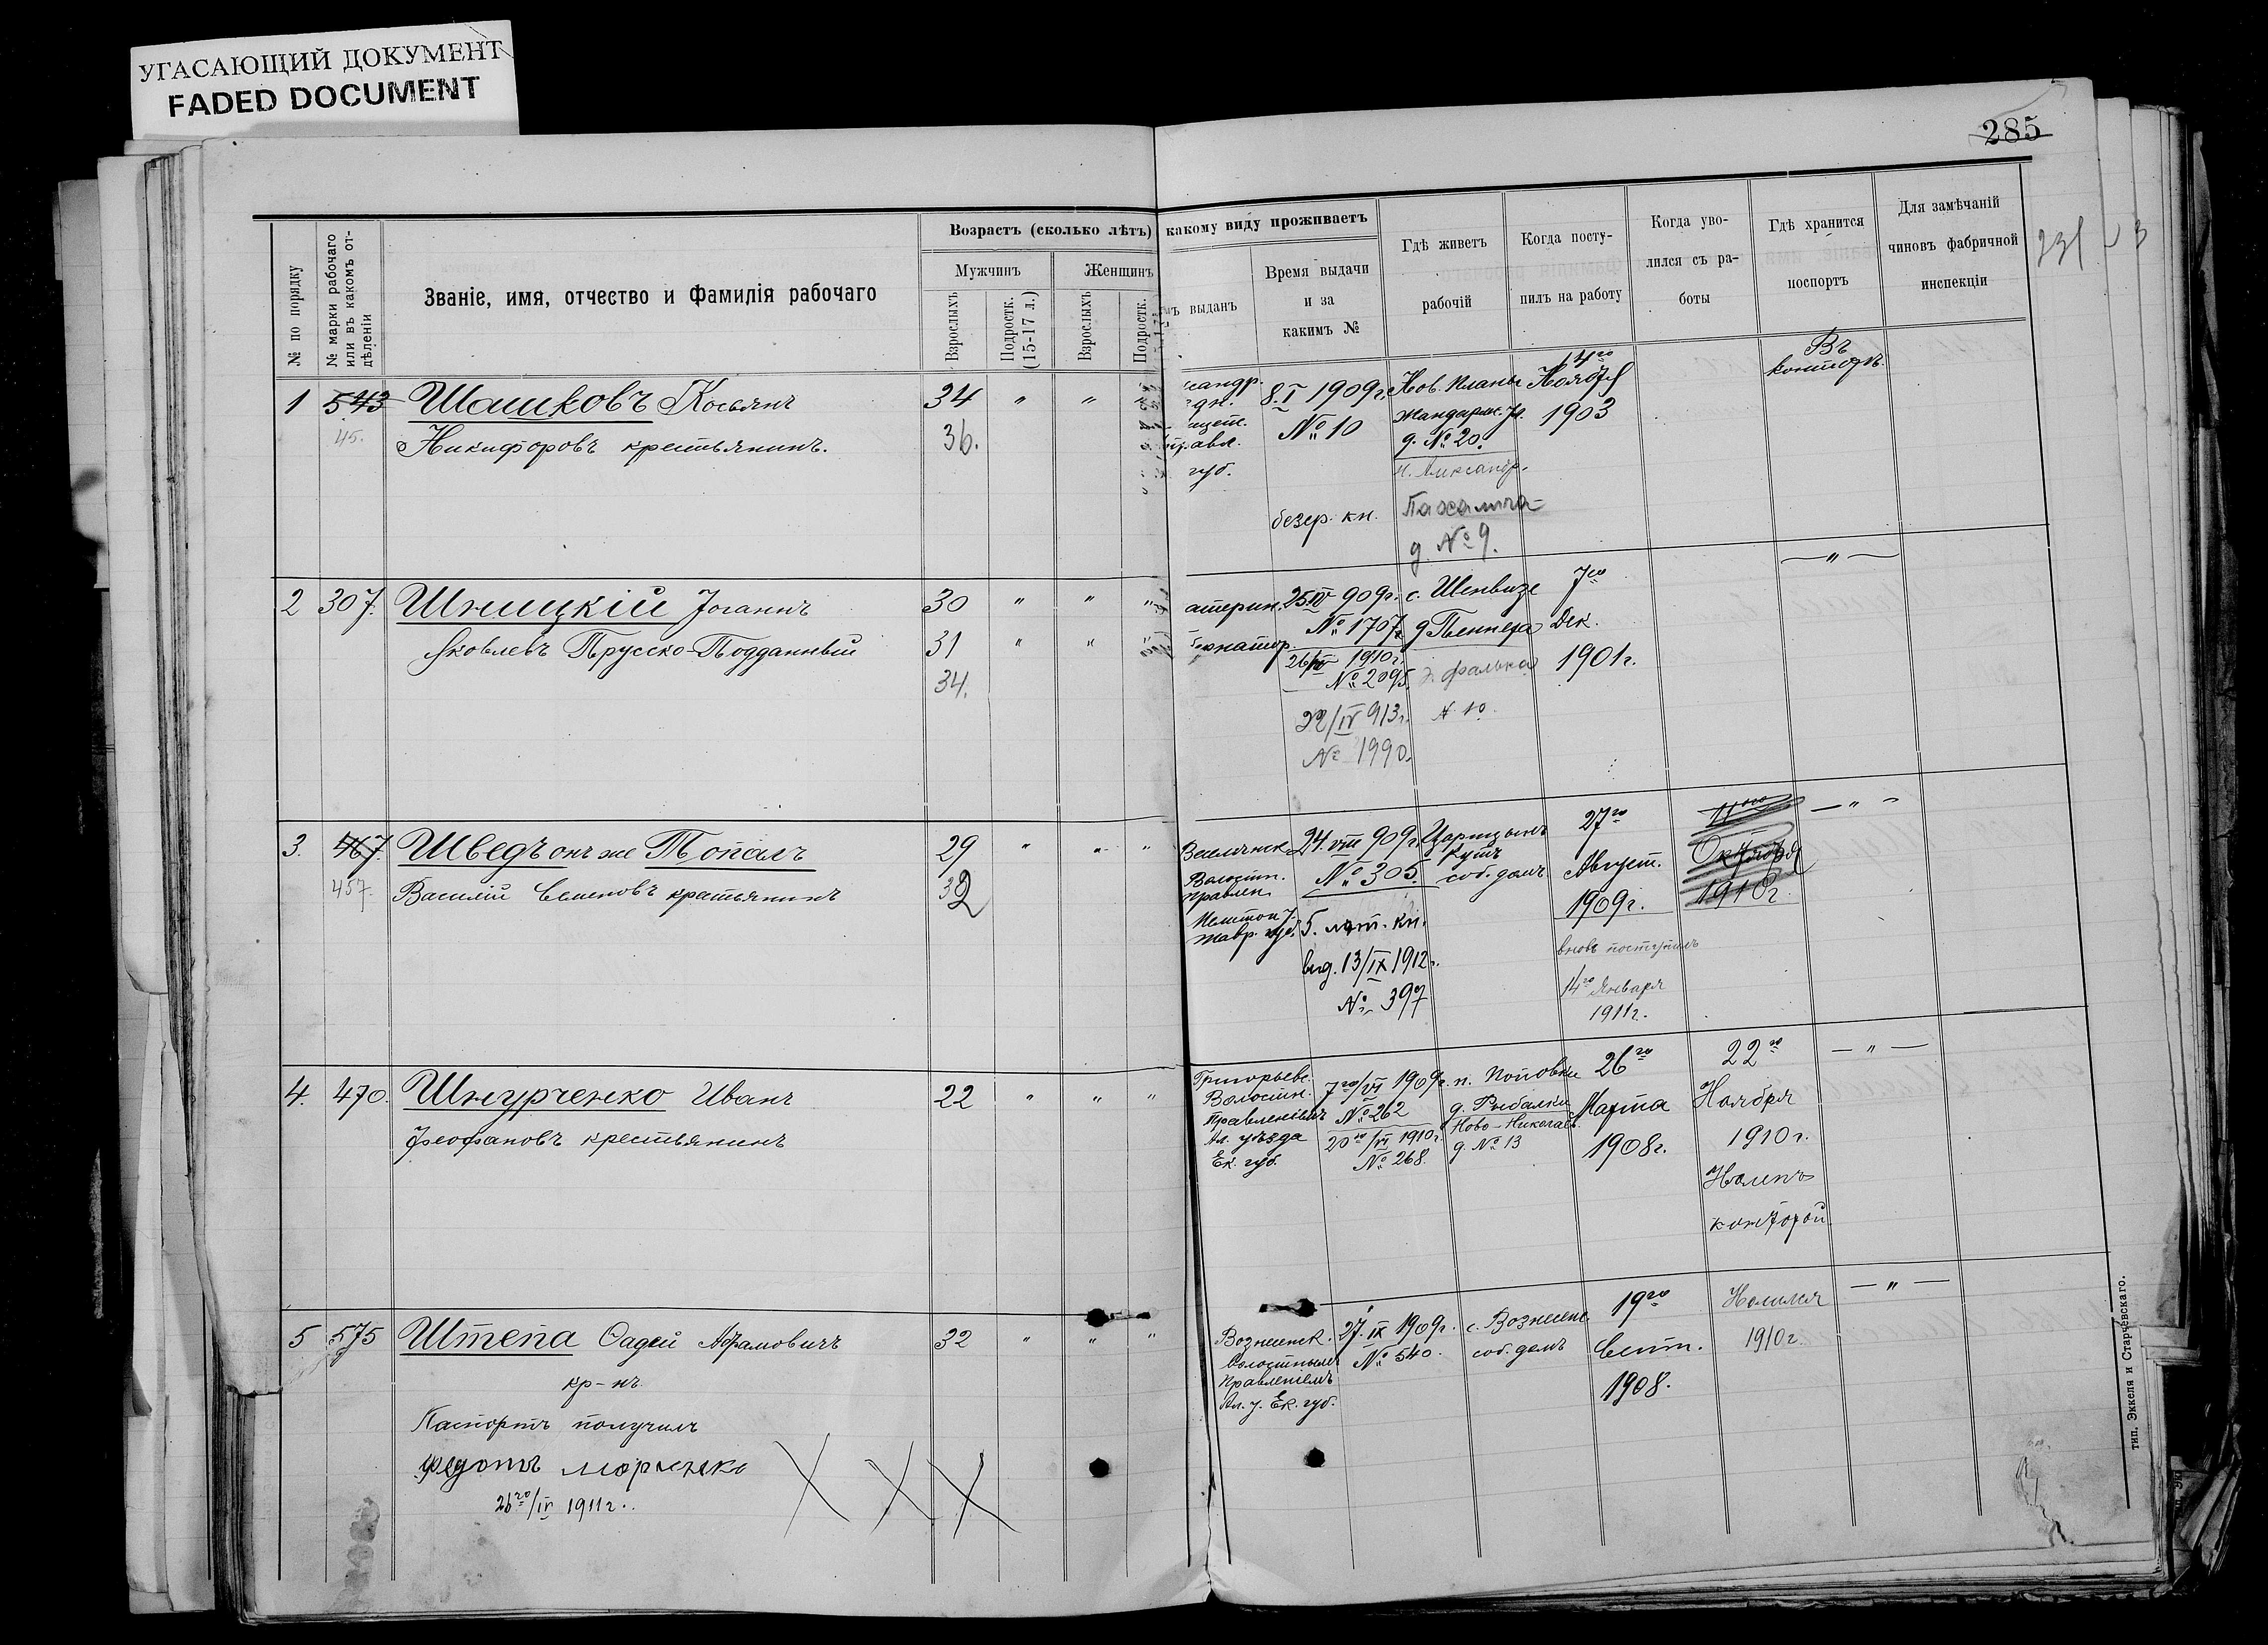 УГАСАЮЩИЙ ДОКУМЕНТ
FADED DOCUMENT
285
231
№ по порядку
№ марки рабочаго
или въ какомъ от-
дѣленіи
Званіе, имя, отчество и фамилія рабочаго
Возрастъ (сколько лѣтъ)
Мужчинъ
Женщинъ
Взрослыхъ
Подростк.
(15-17 л.)
Взрослыхъ
Подростк.
какому виду проживаетъ
ъ выданъ
Время выдачи
и за
какимъ №
Гдѣ живетъ
рабочій
Когда посту-
пилъ на работу
Когда уво-
лился съ ра-
боты
Гдѣ хранится
поспортъ
Для замѣчаній
чиновъ фабричной
инспекціи
1
543
45.
Шашковъ Косьянъ
Никифоровъ крестьянинъ.
34 " "
36.
сандр.
правл.
губ.
8.I 1909г.
№ 10
безер. кн.
Нов. Планы
Жандарм. Ул.
д. № 20.
Н. Александр.
д. № 9.
14го
Ноября
1903
Въ
конторѣ.
2
307.
Шницкій Іоганнъ
Яковлевъ Прусско-Подданный
30 " " "
31 " " "
34.
атерин.
25.IV 909г.
№ 1707
26/IV 1910г.
№ 2095.
22/IV 913г.
№ 1990.
с. Шенвизе
д Пеннера
д. Фалька
№ 10.
7го
Дек.
1901г.
— " —
3.
467.
457.
Шведъ онъ же Топалъ
Василій Семеновъ крестьянинъ
29 " " "
32
Волостн.
правлен.
Мелитоп. У.
Тавр. губ.
24.VIII 909г.
№ 305.
5. лѣт. кн.
выд. 13/IX 1912г.
№ 397
Царицынъ
Кутъ
соб. домъ
27го
Август.
1909г.
вновь поступилъ
14го Января
1911г.
11ого
Октября
1910г
— " —
4.
470.
Шнурченко Иванъ
Феофановъ крестьянинъ
22 " " "
Григорьевс.
Волостн.
Правленіемъ
Ал. уѣзда
Ек. губ.
7го/VI 1909г.
№ 262
20го/VI 1910г.
№ 268.
п. Поповки
д. Рыбалки
Ново-Николаев.
д. № 13
26го
Марта
1908г.
22го
Ноября
1910г.
конторой
— " —
5
575
Штепа Фадей Абрамовичъ
кр-нъ.
32 " " "
Паспортъ получилъ
федотъ
26го/IV 1911г.
Х Х Х
Вознесенск.
Волостнымъ
Правленіемъ
Ал. у. Ек. губ.
27.IX 1909г.
№ 540.
с. Вознесенс.
соб. домъ
19го
Сент.
1908.
1910г.
— " —
тип. Эккеля и Старчевскаго.